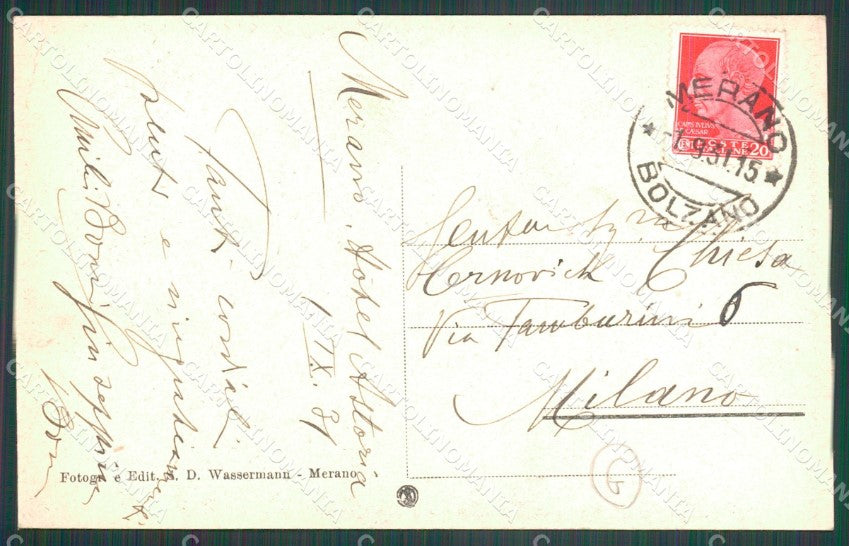 Merano, Hotel Astoria
1 IX. 31
Tanti cordiali
saluti e ringraziamenti
Giuseppina
Fotogr. e Edit. S. D. Wassermann - Merano
CAIVS IVLIVS
CAESAR
POSTE
ITALIANE
CENT 20
MERANO
1.9.31.15
BOLZANO
Chiesa
Cernovich
Via Tamburini 6
Milano
G
CARTOLINOMANIA